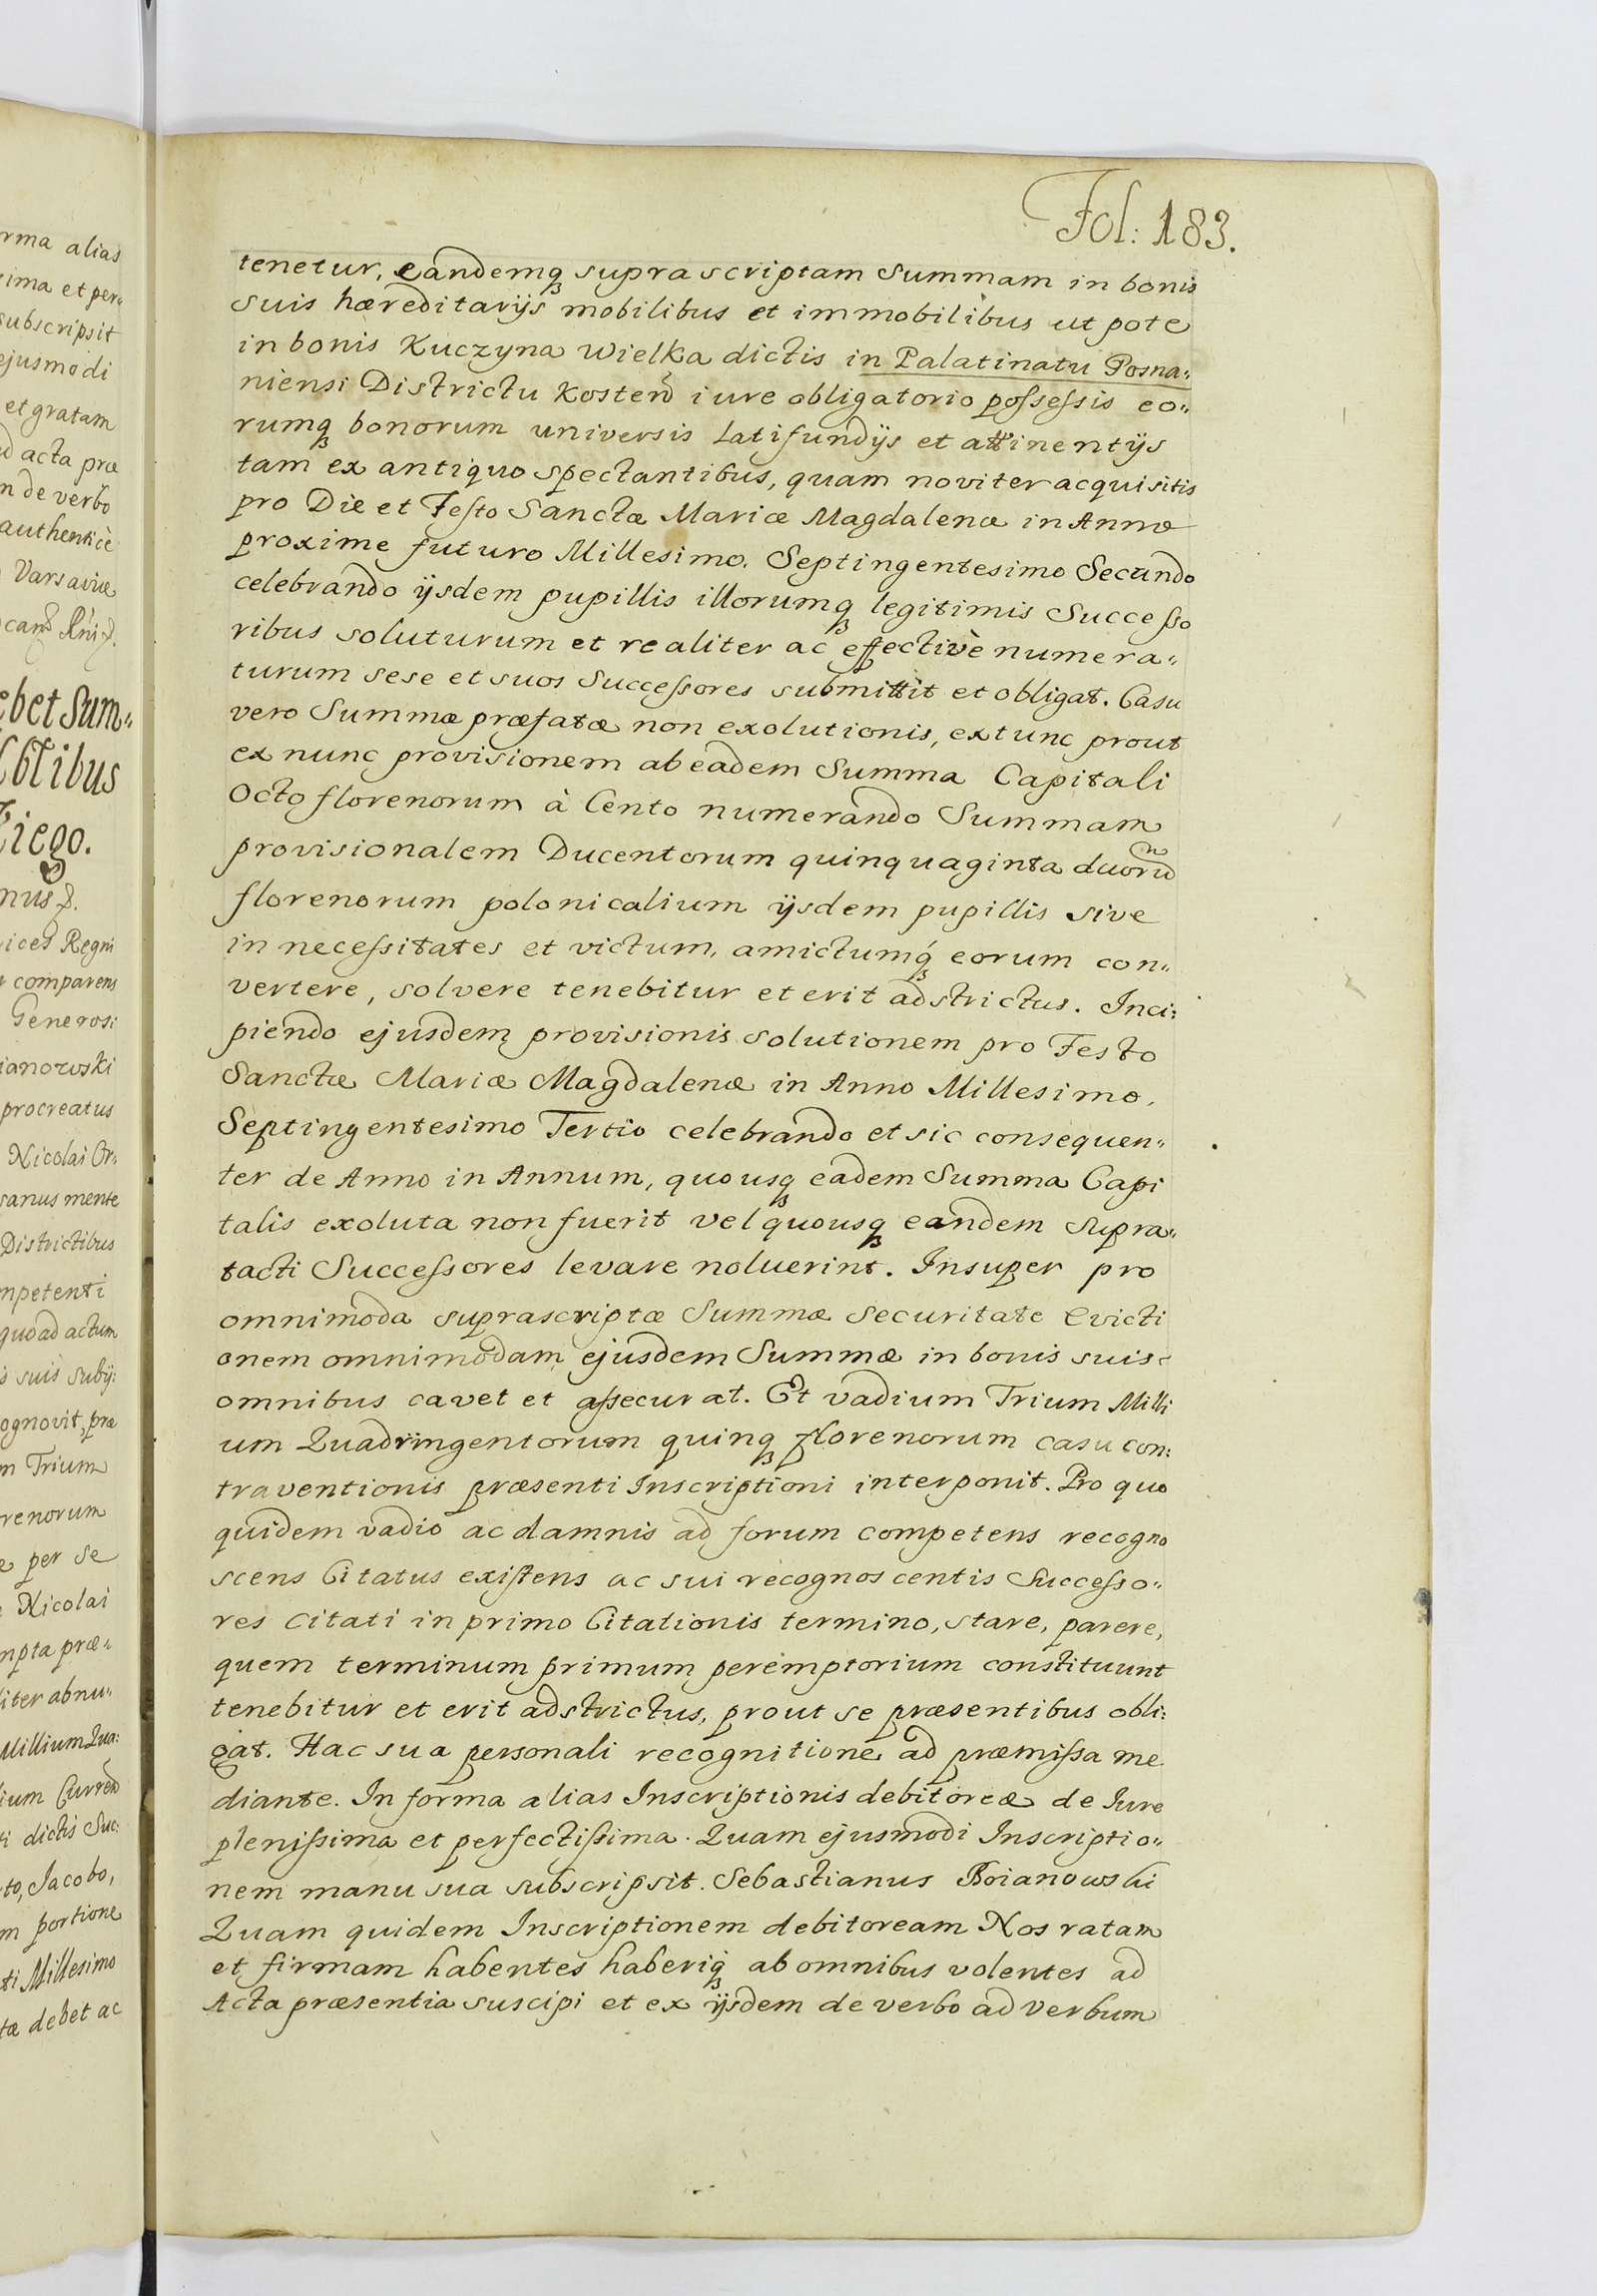 Fol: 183.
tenetur, eandemq3 supra scriptam Summam in bonis
suis hæreditarijs mobilibus et immobilibus ut pote
in bonis Kuczyna Wielka dictis in Palatinatu Posna„
niensi Districtu Kosten̄ iure obligatorio poſseſsis eo„
rumq3 bonorum universis Latifundijs et attinentijs
tam ex antiquo spectantibus, quam noviter acquisitis
pro Die et Feſto Sanctæ Mariæ Magdalenæ in Anno
proxime futuro Millesimo. Septingentesimo Secundo
celebrando ijsdem pupillis illorumq3 legitimis Succeſso
ribus soluturum et realiter ac effectivè numera„
turum sese et suos Succeſsores submittit et obligat. Casu
vero Summæ præfatæ non exolutionis, extunc prout
ex nunc provisionem ab eadem Summa Capitali
Octo florenorum à Cento numerando Summam
provisionalem Ducentorum quinquaginta duorū
florenorum polonicalium ijsdem pupillis sive
in neceſsitates et victum, amictumq́3 eorum con„
vertere, solvere tenebitur et erit adstrictus. Inci:
piendo ejusdem provisionis solutionem pro Festo
Sanctæ Mariæ Magdalenæ in Anno Millesimo,
Septingentesimo Tertio celebrando et sic consequen„
ter de Anno in Annum, quousq3 eadem Summa Capi
talis exoluta non fuerit vel quousq3 eandem supra„
tacti Succeſsores levare noluerint. Insuper pro
omnimoda suprascriptæ Summæ securitate Evicti
onem omnimodam ejusdem Summæ in bonis suis
omnibus cavet et aſsecurat. Et vadium Trium Milli
um Quadringentorum quinq3 florenorum casu con:
traventionis præsenti Inscriptioni interponit. Pro quo
quidem vadio ac damnis ad forum competens recogno
scens Citatus exiſtens ac sui recognoscentis Succeſso„
res citati in primo Citationis termino, stare, parere,
quem terminum primum peremptorium constituunt
tenebitur et erit adstrictus, prout se præsentibus obli:
gat. Hac sua personali recognitione ad præmiſsa me
diante. In forma alias Inscriptionis debitoreæ de Iure
pleniſsima et perfectiſsima. Quam ejusmodi Inscriptio„
nem manu sua subscripsit. Sebastianus Boianowski
Quam quidem Inscriptionem debitoream Nos ratam
et firmam habentes haberiq́3 ab omnibus volentes ad
Acta præsentia suscipi et ex ijsdem de verbo ad verbum